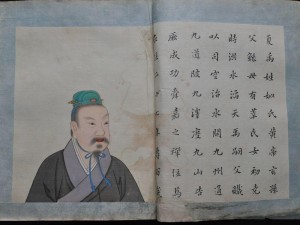 夏禹姓姒氏黃帝玄孫
父鯀母有莘氏女初堯
時洪水滔天禹嗣父職
以司空治水開九州通
九道陂九澤度九山告
厥成功舜嘉之禪位焉